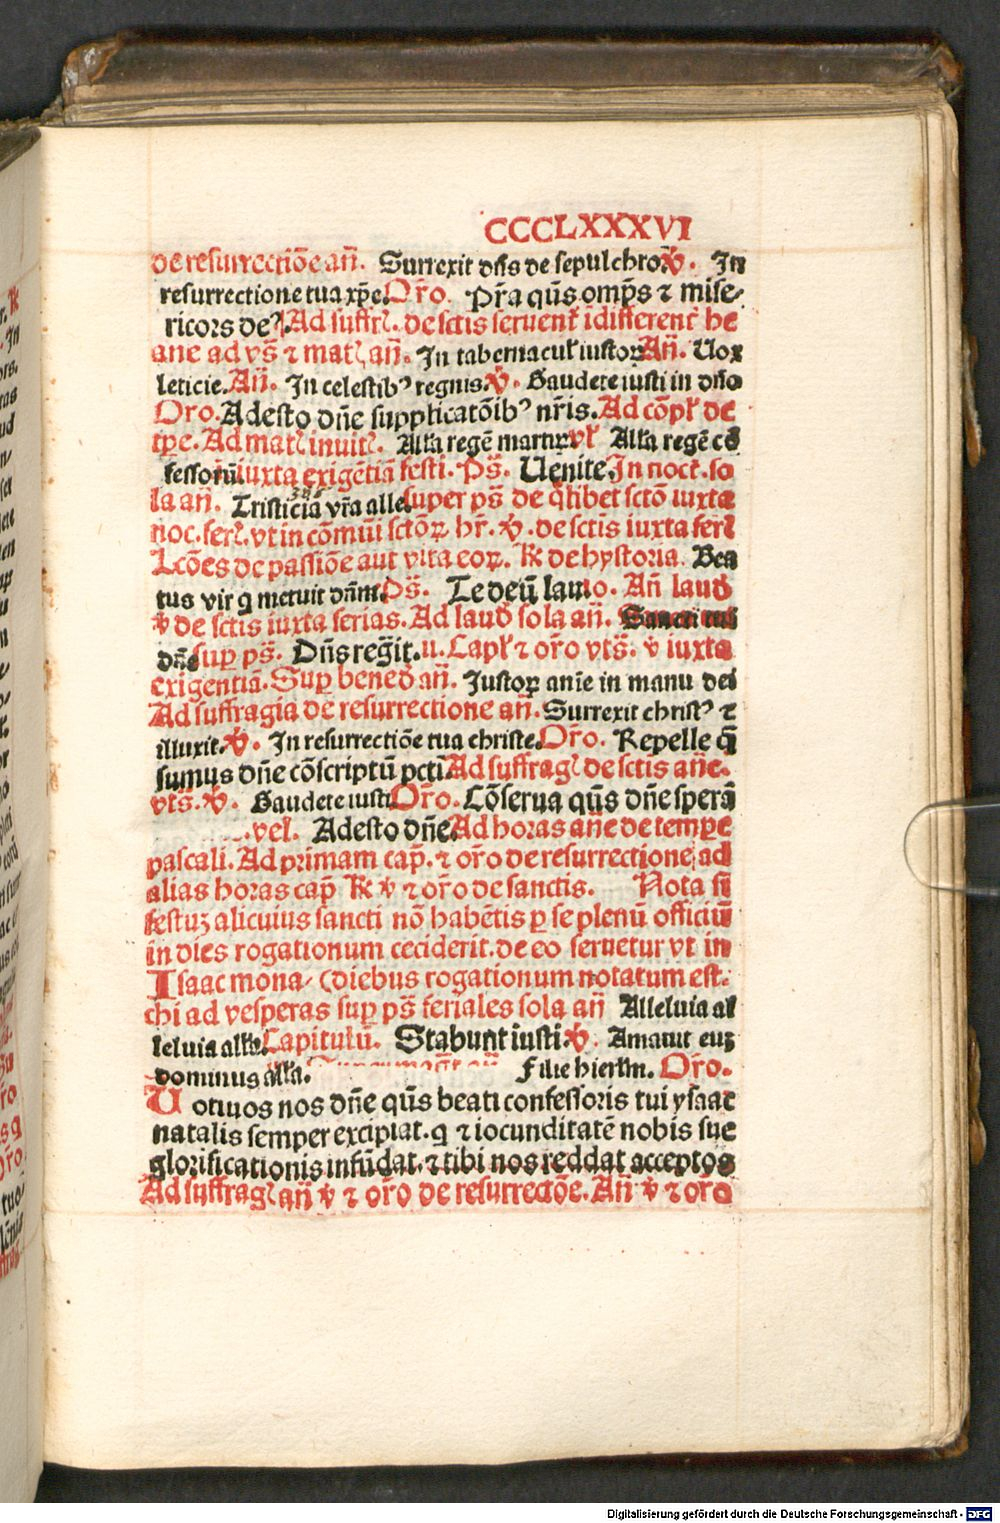 CCCLXXXVI
de resurrectiōe añ. Surrexit dn̄s de sepulchro. ℣. In
resurrectione tua xp̄e. Or̄o. Pr̄a qūs omp̄s ⁊ mise-
ricors deꝰ. Ad suffrꝭ. de sctis seruent̄ īdifferent̄ he
ane ad vs̄ ⁊ matꝭ añ. In tabernacul̄ iustoꝝ Añ. Uox
leticie. Añ. In celestibꝰ regnis. ℣. Gaudete iusti in dn̄o
Oro. Adesto dn̄e supplicatōibꝰ nr̄is. Ad cōpl̄ de
tp̄e. Ad matꝭ inuitꝭ. All'a regē martyꝝ vl̄ All'a regē cō
fessorū iuxta exigētiā festi. Ps̄. Uenite. In noct̄. so
la añ. Tristicia vr̄a alle. super ps̄ de q̄libet sctō iuxta
noc. ferꝭ. vt in cōmuī sctōꝝ hr̄. ℣. de sctis iuxta ferꝭ
Lcōes de passiōe aut vita eoꝝ. ℟ de hystoria. Bea
tus vir q̄ metuit dn̄m. Ps̄. Te deū lau io. Añ laud
℣ de sctis iuxta ferias. Ad laud sola añ. Sancti tui
dn̄e sup ps̄. Dn̄s reg̃it. u. Capl̄ ⁊ or̄o vts̄. ℣ iuxta
exigentiā. Sup bened añ. Justoꝝ anīe in manu dei
Ad suffragia de resurrectione añ. Surrexit christꝰ ⁊
illuxit. ℣. In resurrectiōe tua christe. Or̄o. Repelle q̄
sumus dn̄e cōscriptū pctī Ad suffragꝭ de sctis añe.
vts̄. ℣. Gaudete iusti Or̄o. Cōserua qūs dn̄e sperā
.vel. Adesto dn̄e Ad horas añe de tempe
pascali. Ad primam cap̄. ⁊ or̄o de resurrectione ad
alias horas cap̄ ℟ ℣ ⁊ or̄o de sanctis. Nota si
festuꝫ alicuius sancti nō habētis p se plenū officiū
in dies rogationum ceciderit. de eo seruetur vt in
Isaac mona- (diebus rogationum notatum est.
chi ad vesperas sup ps̄ feriales sola añ Alleluia al
leluia all'a. Capitulū. Stabunt iusti ℣. Amauit euꝫ
dominus all'a. Filie hierl̄m. Or̄o.
Uotiuos nos dn̄e qūs beati confessoris tui ysaac
natalis semper excipiat. q ⁊ iocunditatē nobis sue
glorificationis infūdat. ⁊ tibi nos reddat acceptos
Ad suffragꝭ añ ℣ ⁊ or̄o de resurrectōe. Añ ℣ ⁊ oro
Digitalisierung gefördert durch die Deutsche Forschungsgemeinschaft - DFG